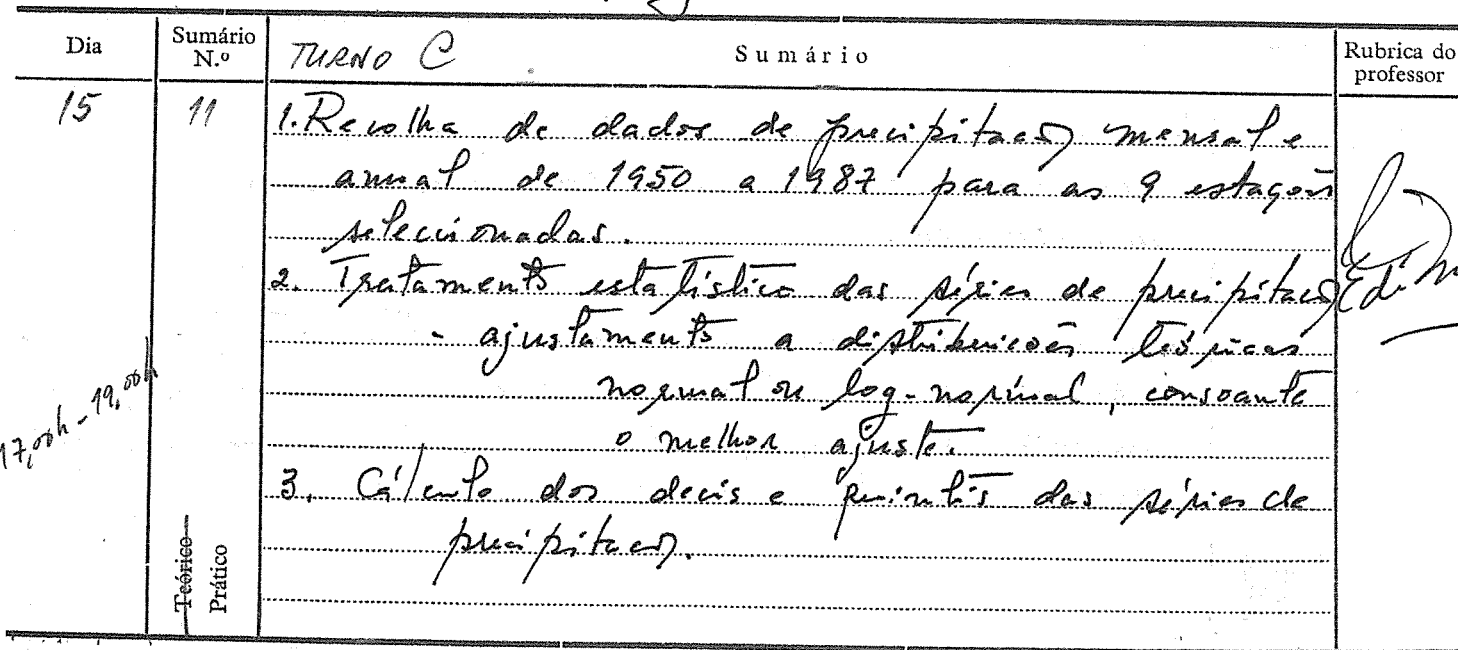 Dia
Sumário N.º
TURNO C
Sumário
Rubrica do professor
15
11
1. Recolha de dados de precipitação mensal e
anual de 1950 a 1987 para as 9 estações
seleccionadas.
2. Tratamento estatístico das séries de precipitação
- ajustamento a distribuições teóricas
normal ou log-normal, consoante
o melhor ajuste.
3. Cálculo dos decis e quintis das séries de
precipitação.
17,00h - 19,00h
Teórico
Prático